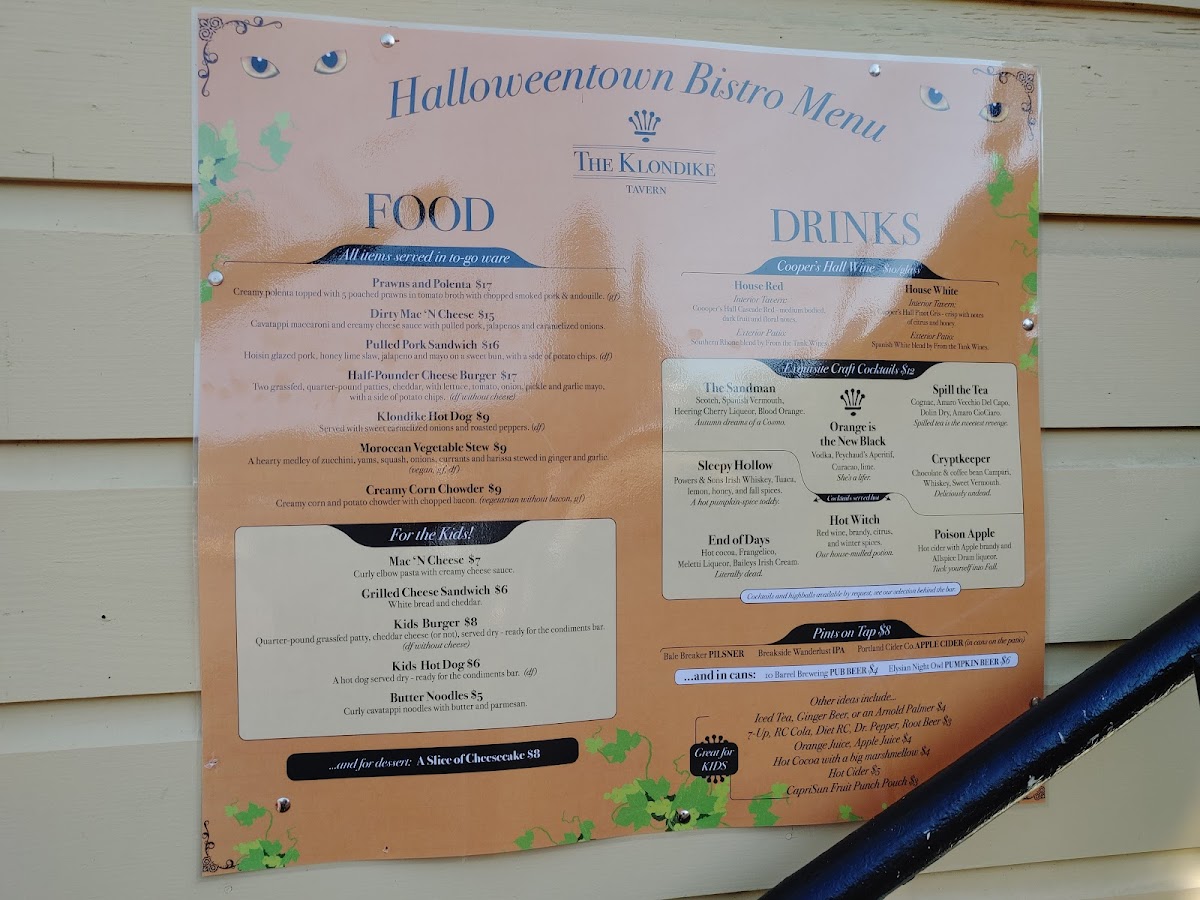 Halloweentown Bistro Menu
THE KLONDIKE
TAVERN
FOOD
All items served in to-go ware
Prawns and Polenta $17
Creamy polenta topped with 5 poached prawns in tomato broth with chopped smoked pork & andouille. (gf)
Dirty Mac 'N Cheese $15
Cavatappi maccaroni and creamy cheese sauce with pulled pork, jalapenos and caramelized onions.
Pulled Pork Sandwich $16
Hoisin glazed pork, honey lime slaw, jalapeno and mayo on a sweet bun, with a side of potato chips. (df)
Half-Pounder Cheese Burger $17
Two grassfed, quarter-pound patties, cheddar, with lettuce, tomato, onion, pickle and garlic mayo,
with a side of potato chips. (df without cheese)
Klondike Hot Dog $9
Served with sweet carmelized onions and roasted peppers. (df)
Moroccan Vegetable Stew $9
A hearty medley of zucchini, yams, squash, onions, currants and harissa stewed in ginger and garlic.
(vegan, gf, df)
Creamy Corn Chowder $9
Creamy corn and potato chowder with chopped bacon. (vegetarian without bacon, gf)
For the Kids!
Mac 'N Cheese $7
Curly elbow pasta with creamy cheese sauce.
Grilled Cheese Sandwich $6
White bread and cheddar.
Kids Burger $8
Quarter-pound grassfed patty, cheddar cheese (or not), served dry - ready for the condiments bar.
(df without cheese)
Kids Hot Dog $6
A hot dog served dry - ready for the condiments bar. (df)
Butter Noodles $5
Curly cavatappi noodles with butter and parmesan.
...and for dessert: A Slice of Cheesecake $8
DRINKS
Cooper's Hall Wine $10/glass
House Red
Interior Tavern:
Coooper's Hall Cascade Red - medium bodied,
dark fruit and floral notes.
Exterior Patio:
Southern Rhone blend by From the Tank Wines.
House White
Interior Tavern:
Coooper's Hall Pinot Gris - crisp with notes
of citrus and honey.
Exterior Patio:
Spanish White blend by From the Tank Wines.
Exquisite Craft Cocktails $12
The Sandman
Scotch, Spanish Vermouth,
Heering Cherry Liqueur, Blood Orange.
Autumn dreams of a Cosmo.
Orange is
the New Black
Vodka, Peychaud's Aperitif,
Curacao, lime.
She's a lifer.
Spill the Tea
Cognac, Amaro Vecchio Del Capo,
Dolin Dry, Amaro CioCiaro.
Spilled tea is the sweetest revenge.
Cryptkeeper
Chocolate & coffee bean Campari,
Whiskey, Sweet Vermouth.
Deliciously undead.
Cocktails served hot
Sleepy Hollow
Powers & Sons Irish Whiskey, Tuaca,
lemon, honey, and fall spices.
A hot pumpkin-spice toddy.
End of Days
Hot cocoa, Frangelico,
Meletti Liqueur, Baileys Irish Cream.
Literally dead.
Hot Witch
Red wine, brandy, citrus,
and winter spices.
Our house-mulled potion.
Poison Apple
Hot cider with Apple brandy and
Allspice Dram liqueur.
Tuck yourself into Fall.
Cocktails and highballs available by request, see our selection behind the bar.
Pints on Tap $8
Bale Breaker PILSNER Breakside Wanderlust IPA Portland Cider Co. APPLE CIDER (in cans on the patio)
...and in cans: 10 Barrel Breweing PUB BEER $4 Elysian Night Owl PUMPKIN BEER $6
Other ideas include...
Iced Tea, Ginger Beer, or an Arnold Palmer $4
7-Up, RC Cola, Diet RC, Dr. Pepper, Root Beer $3
Orange Juice, Apple Juice $4
Hot Cocoa with a big marshmellow $4
Hot Cider $5
CapriSun Fruit Punch Pouch $3
Great for
KIDS